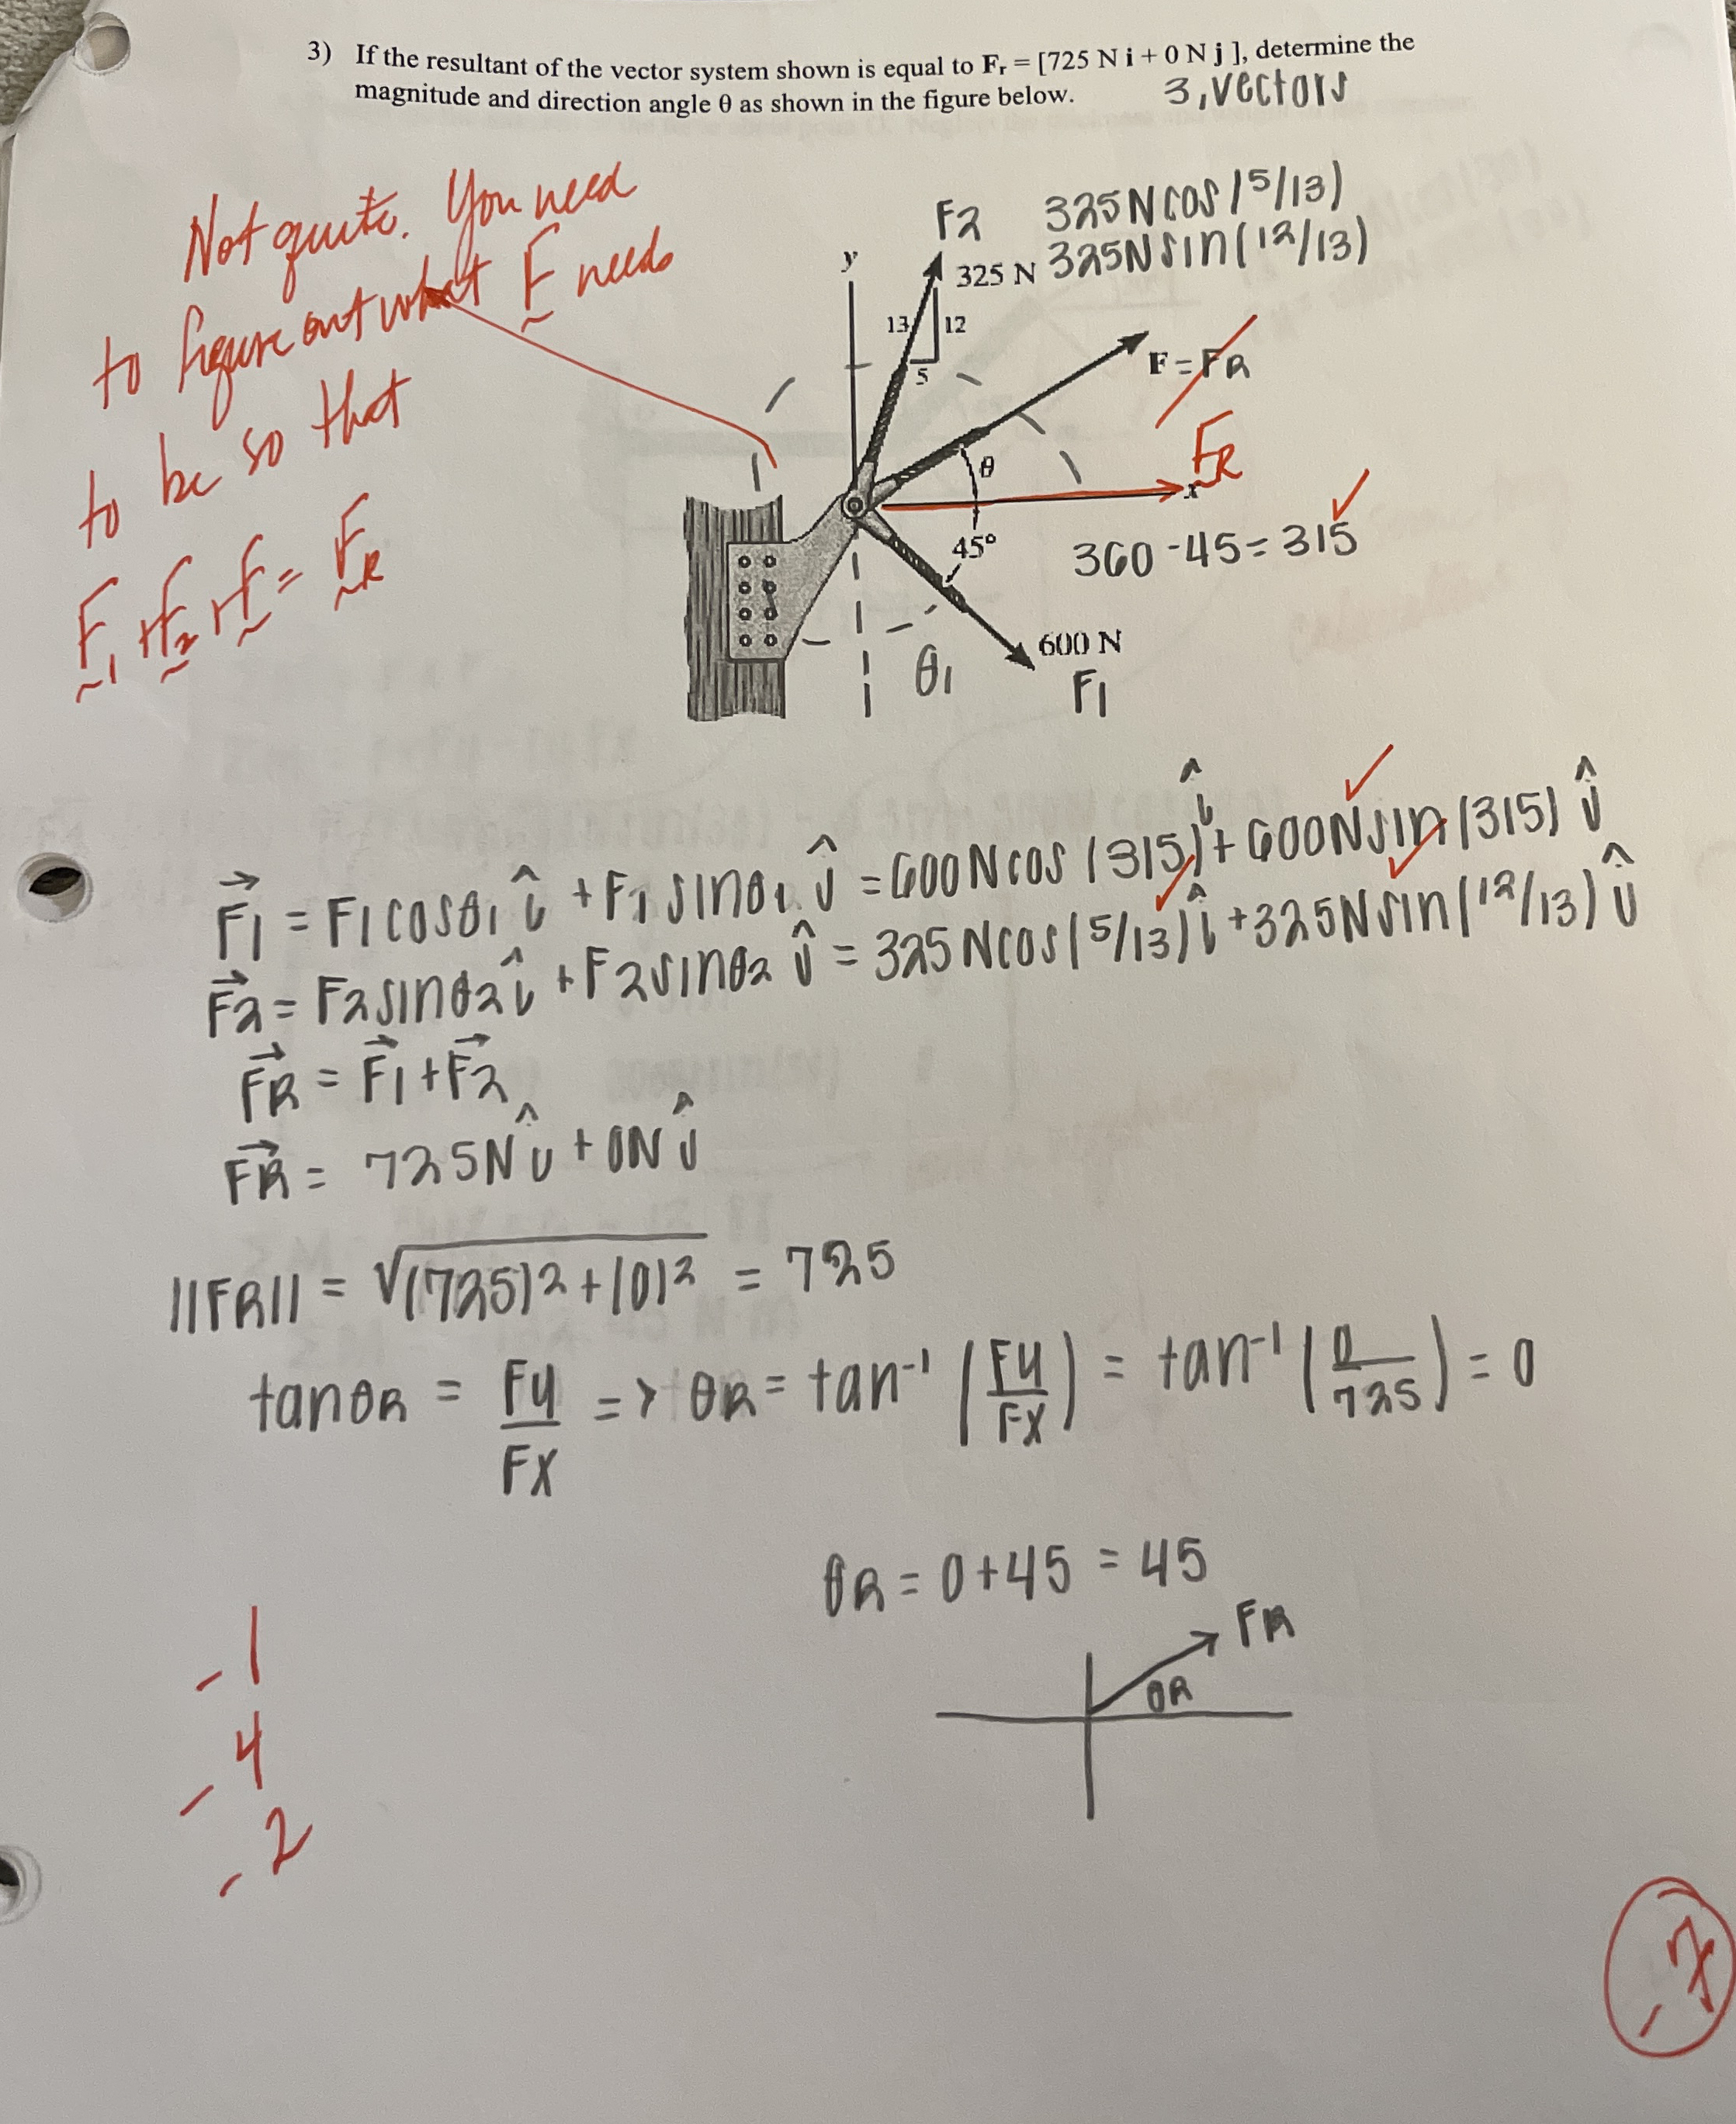 3) If the resultant of the vector system shown is equal to Fr = [725 N i + 0 N j ], determine the
magnitude and direction angle θ as shown in the figure below.
3, vectors
Not quite. You need
to figure out what F needs
to be so that
F1 + F2 + F = FR
F2 325N cos (5/13)
325N sin (12/13)
y
325 N
13
12
5
F = FR
FR
θ
x
45°
360 - 45 = 315
600 N
θ1
F1
F1 = F1 cosθ1 î + F1 sinθ1 ĵ = 600N cos (315) î + 600N sin (315) ĵ
F2 = F2 sinθ2 î + F2 sinθ2 ĵ = 325N cos (5/13) î + 325N sin (12/13) ĵ
FR = F1 + F2
FR = 725N î + 0N ĵ
||FR|| = √(725)2 + (0)2 = 725
tanθR = Fy/Fx => θR = tan-1 (Fy/Fx) = tan-1 (0/725) = 0
θR = 0 + 45 = 45
FR
θR
-1
-4
-2
-7